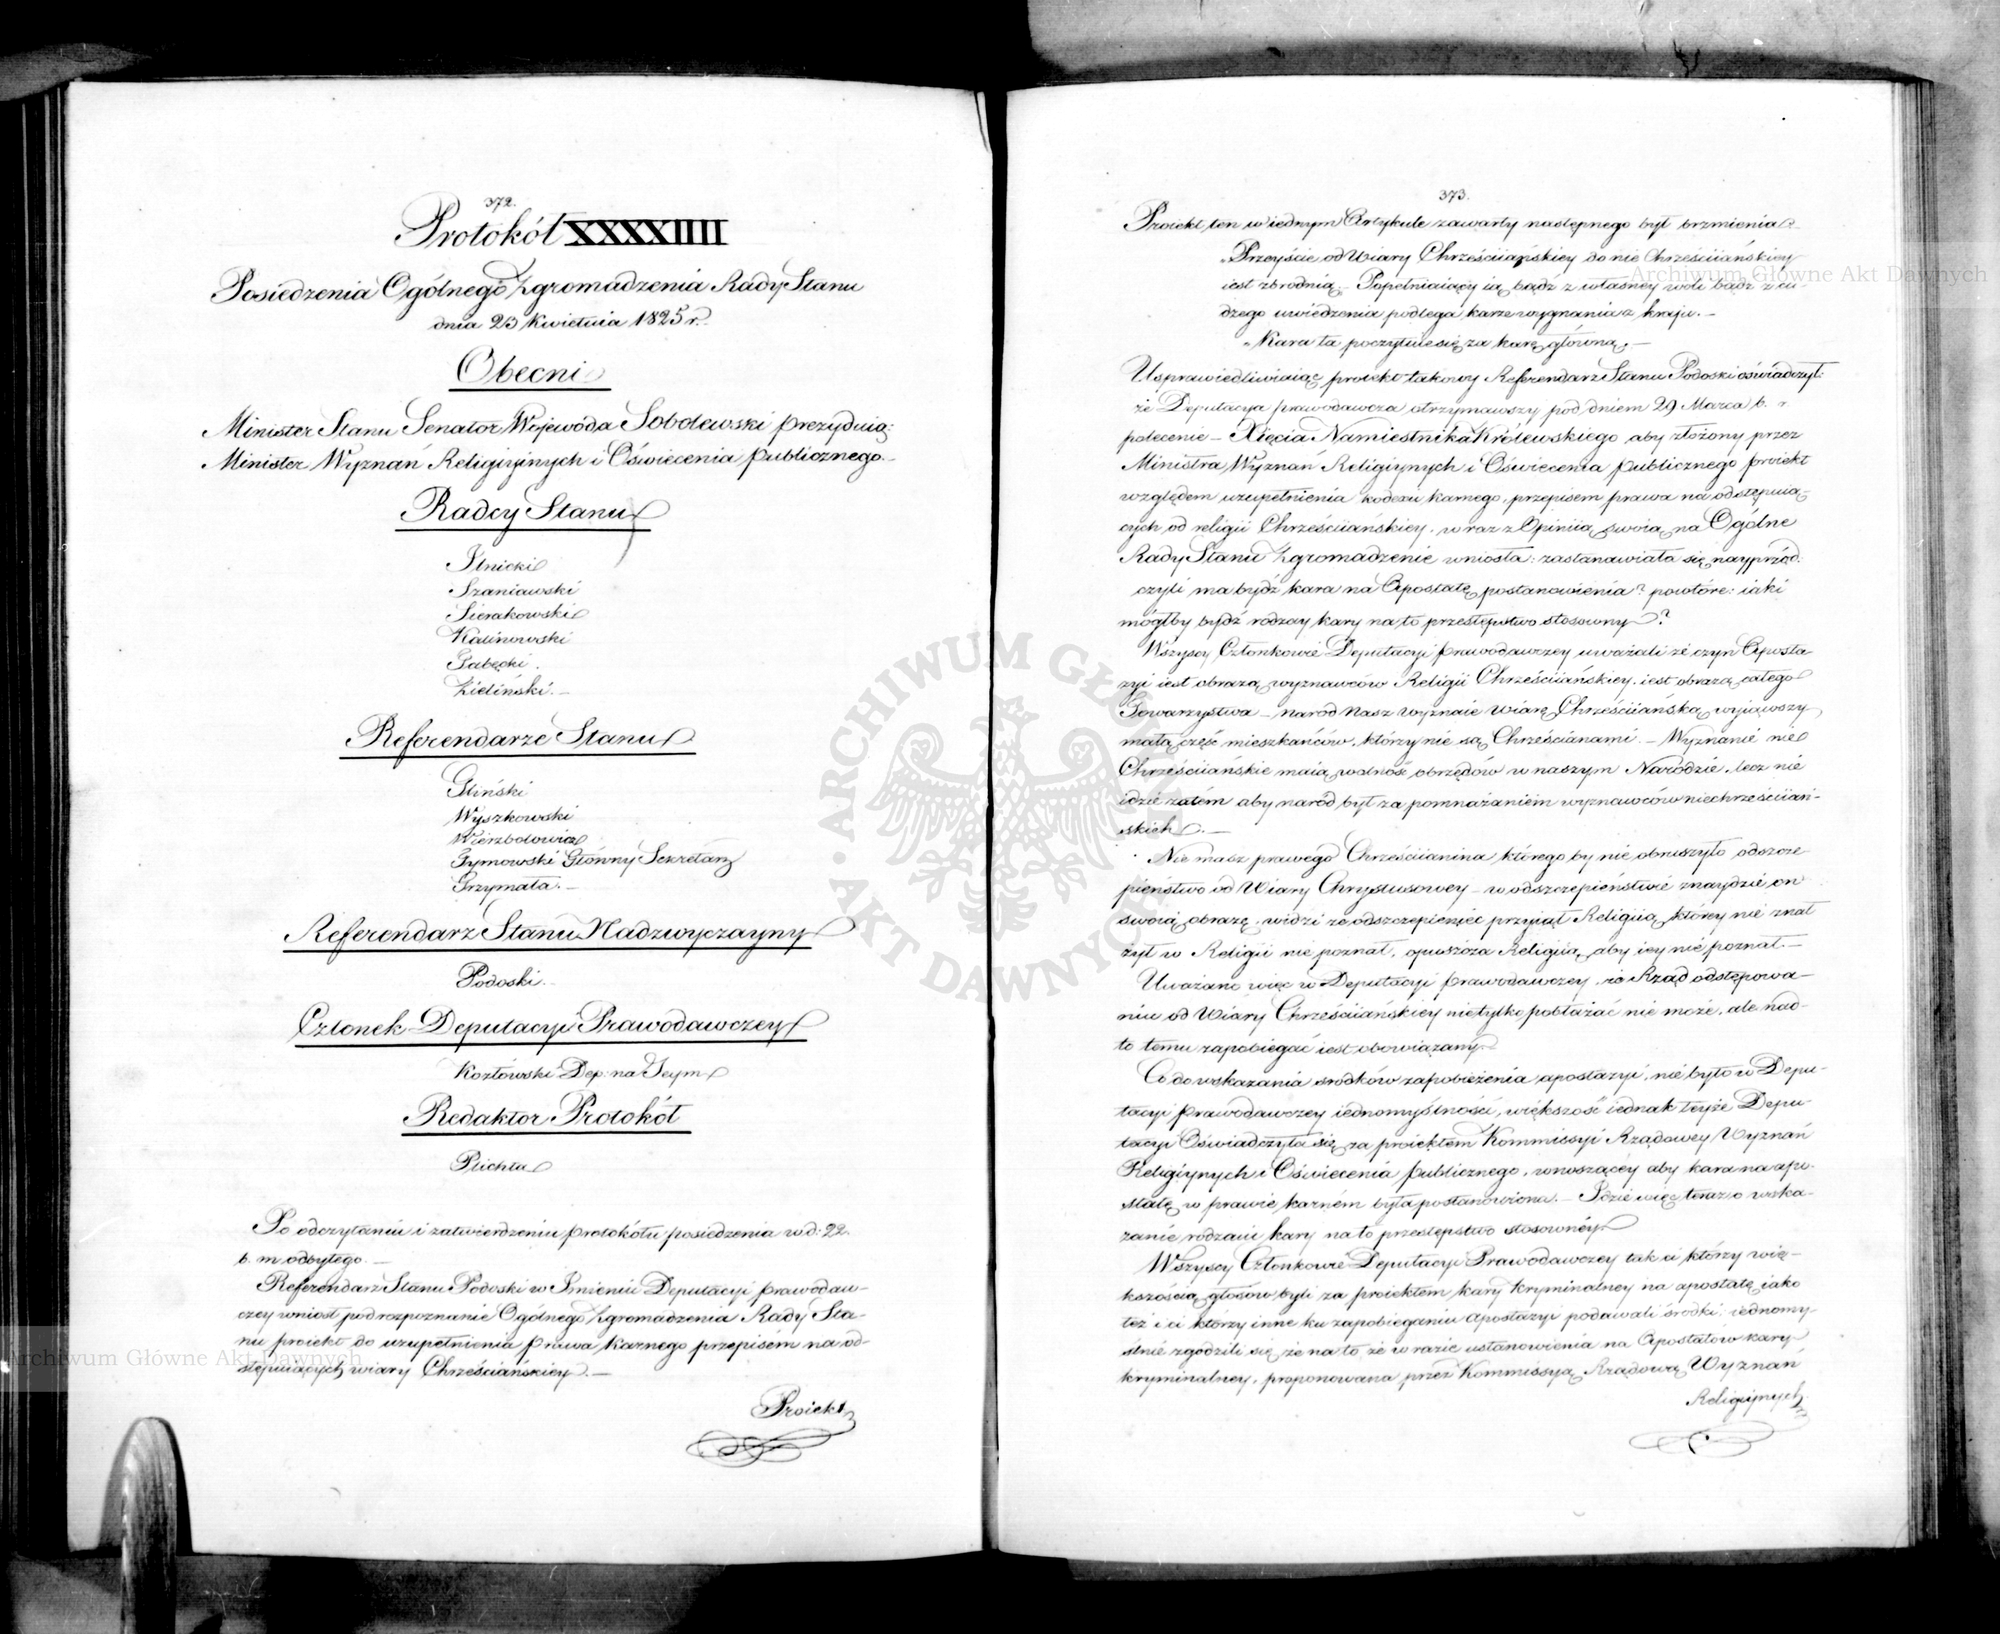 372.
Protokół XXXXIIII
Posiedzenia Ogólnego Zgromadzenia Rady Stanu
dnia 23 Kwietnia 1825 r.
Obecni
Minister Stanu Senator Wojewoda Sobolewski prezyduią:
Minister Wyznań Religiynych i Oświecenia publicznego.
Radcy Stanu
Ilnicki
Szaniawski
Sierakowski
Kalinowski
Gabęcki.
Zieliński. —
Referendarze Stanu
Gliński
Wyszkowski
Wierzbołowicz
Tymowski Główny Sekretarz
Grzymała. —
Referendarz Stanu Nadzwyczayny
Podoski.
Członek Deputacyi Prawodawczey
Kozłowski Dep: na Seym
Redaktor Protokół
Plichta
Po odczytaniu i zatwierdzeniu protokółu posiedzenia w d: 22.
b. m. odbytego. —
Referendarz Stanu Podoski w Imieniu Deputacyi prawodaw-
czey wniost pod rozpoznanie Ogólnego Zgromadzenia Rady Sta-
nu proiekt do uzupełnienia prawa karnego przepisem na od-
stępuiących wiary Chrześciańskiey. —
Proiekt
373.
Proiekt ten w iednym Artykule zawarty następnego był brzmienia
„Przeyście od Wiary Chrześciiańskiey do nie Chrześciiańskiey
iest zbrodnią. — Popełniaiący ią bądź z własney woli bądź z cu-
dzego uwiedzenia podlega karze wygnania z kraju. —
„Kara ta poczytuie się za karę główną. —
Usprawiedliwiaiąc proiekt takowy Referendarz Stanu Podoski oświadczył:
że Deputacya prawodawcza otrzymawszy pod dniem 29 Marca b. r.
polecenie — Xięcia Namiestnika Królewskiego aby złożony przez
Ministra Wyznań Religiynych i Oświecenia publicznego proiekt
względem uzupełnienia kodexu karnego, przepisem prawa na odstępuią-
cych od religii Chrześciiańskiey, wraz z Opiniią swoią na Ogólne
Rady Stanu Zgromadzenie wniosła: zastanawiała się nayprzód:
czyli ma bydź kara na Apostatę postanowienia? powtóre: iaki
mógłby bydź rodzay kary na to przestępstwo stosowny?
Wszyscy Członkowie Deputacyi prawodawczey uważali że czyn Aposta-
zyi iest obrazą wyznawców Religii Chrześciiańskiey, iest obrazą całego
Towarzystwa — naród nasz wyznaie wiarę Chrześciiańską, wyiąwszy
małą część mieszkańców, którzy nie są Chrześcianami. — Wyznanie nie
Chrześciiańskie maią wolność obrzędów w naszym Narodzie, lecz nie
idzie zatém aby naród był za pomnażaniem wyznawców niechrześciiań-
skich. —
Nie masz prawego Chrześciianina którego by nie obruszyło odszcze-
pieństwo od Wiary Chrystusowey — w odszczepieństwie znaydzie on
swoią obrazę, widzi że odszczepieniec przyiął Religiią którey nie znał
żył w Religii nie poznał, opuszcza Religiią, aby iey nie poznał. —
Uważano więc w Deputacyi prawodawczey, że Rząd odstępowa-
niu od Wiary Chrześciiańskiey nietylko pobłażać nie może, ale nad-
to temu zapobiegać iest obowiązany.
Co do wskazania srodków zapobieżenia apostazyi, nie było w Depu-
tacyi prawodawczey iednomyślności, większość iednak teyże Depu-
tacyi Oświadczyła się za proiektem Kommissyi Rządowey Wyznań
Religiynych i Oświecenia publicznego, wnoszącéy aby kara na apo-
statę w prawie karném była postanowiona. — Idzie więc teraz o wska-
zanie rodzaiu kary na to przestępstwo stosownéy.
Wszyscy Członkowie Deputacyi Prawodawczey tak ci którzy wię-
kszością głosów byli za proiektem kary kryminalney na apostatę, jako
też i ci którzy inne ku zapobieganiu apostazyi podawali środki, iednomy-
ślnie zgodzili się, że na to, że w razie ustanowienia na Apostatów kary
kryminalney, proponowana przez Kommissyą Rządową Wyznań
Religiynych
Archiwum Główne Akt Dawnych
Archiwum Główne Akt Dawnych
ARCHIWUM GŁÓWNE AKT DAWNYCH